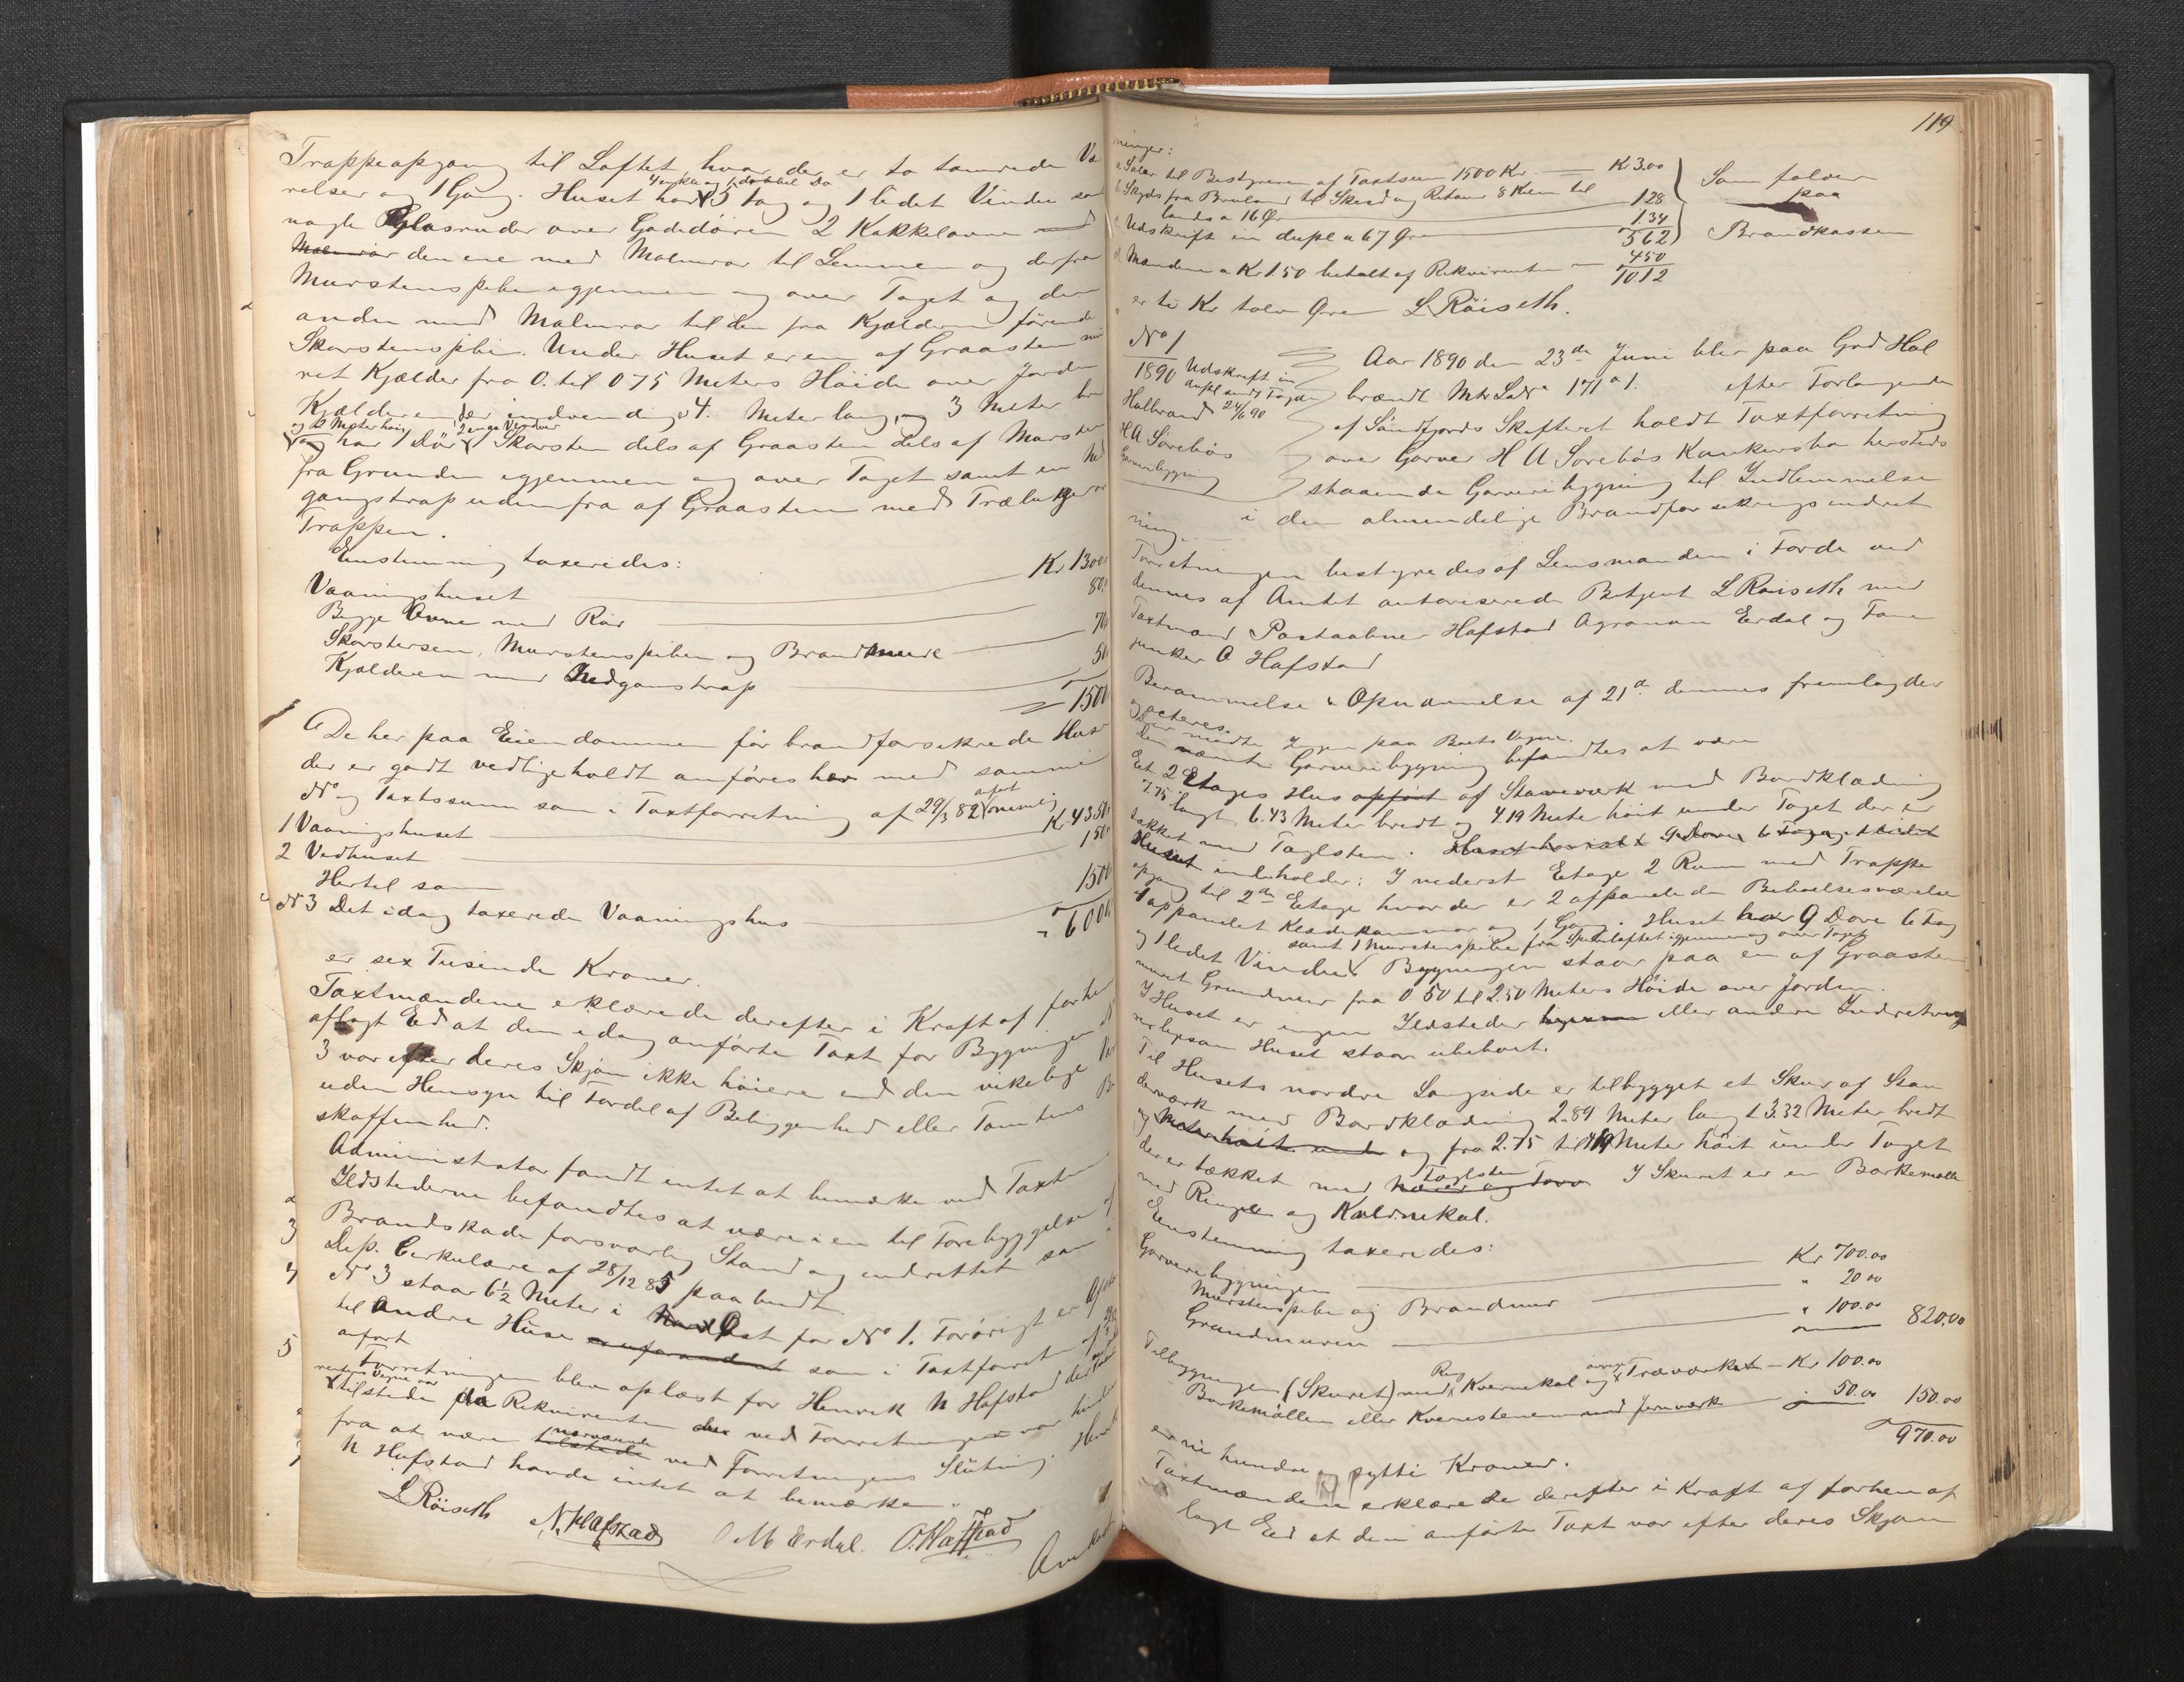 Trappeopgang til Loftet hvor der er to tømrede Væ
relser og 1 Gang. Huset har 4 enkle og 1 dobbel Dør 3 fag og 1 ledet Vindu samt
nogle Glasruder over Gadedören 2 Kakkelovne
Malmrør den ene med Malmrør til Lemmen og derfra
Murstenspibe igjennem og over Taget og den
anden med Malmrør til den fra Kjelderen förende
Skorstenspibe. Under Huset er en af Graasten mu
ret Kjælder fra 0. til 0 75 Meters Höide over Jorden
Kjælderen er indvendig 4. Meter lang, og 3 Meter br
og 2 Meter höi har 1 Dör 2 enge Vinduer 1 Skorsten dels af Graasten dels af Mursten
fra Grunden igjennem og over Taget samt en Ned
gangstrap udenfra af Graasten med Træluge
Trappen.
Enstemmig taxeredes:
Vaaningshuset Kr 1300
Begge Ovne med Rör 80
Skorstenen, Murstenspiben og Brandmure 70
Kjelderen med Nedgangstrap 50
1500
De her paa Eiendommen för brandforsikrede Huse
der er godt vedligeholdt anföres her med samme
No og Taxtssum som i Taxtforretning af 29/3 82 nemlig
1 Vaaningshuset Kr 4350
2 Vedhuset 150
Hertil som
No 3 Det idag taxerede Vaaningshus 1500
6000
er sex Tusinde Kroner.
Taxtmændene erklærede derefter i Kraft af forhen
aflagt Ed at den idag anförte Taxt for Bygningen No
3 var efter deres Skjön ikke höiere end den virkelige Væ
uden Hensyn til Fordel af Beliggenhed eller Tomtens Be
skaffenhed.
Administrator fandt intet at bemærke ved Taxten
2 Ildstederne befandtes at være i en til Forebyggelse af
3 Brandskade forsvarlig Stand og indrettet som
Dep. Cirkulære af 28/12 85 paabudt.
4 No 3 staar 6½ Meter i Öst for No 1. Forövrigt er Afsta
til Andre Huse uforandret som i Taxtforretn af
anfört
5 Forretningen blev oplæst for Henrik N Hafstad der
tilstede da Rekvirenten ved Forretningen var hindre
fra at være tilstede nærværende ved Forretningens Slutning. Henrik
N Hafstad havde intet at bemærke.
L Röiseth N. Hafstad O M Erdal. O. Hafstad
119
ninger:
a Salær til Bestyreren af Taxtsum 1500 Kr. Kr 3.00
b Skyds fra Bruland til Sked og Retour 8 Km til
lands a 16 Ør 128
c Udskrift in dupl a 67 Øre 134
562
Som falder
paa
Brandkassen
d Mændene a Kr 1.50 betalt af Rekvirenten 450
1012
er ti Kr tolv Øre L Röiseth.
No 1
1890 Udskrift in
dupl sendt Fogden
24/6 90
Halbrand
H A Sörebös
Garveribygning
Aar 1890 den 23de Juni blev paa Grd Hal
brændt Mtr Lødr 171 a 1. efter Forlangende
af Söndfjords Skifteret holdt Taxtforretning
over Garver H A Sörebös Konkursbo hersteds
staaende Garveribygning til Indlemmelse
i den almindelige Brandforsikringsindret
ning.
Forretningen bestyredes af Lensmanden i Förde ved
dennes af Amtet autoriserede Betjent L Röiseth med
Taxtmænd Postaabner Hafstad Agronom Erdal og Fane
junker O Hafstad
Berammelse & Opnævnelse af 21de dennes fremlagdes
og acteres.
Der mödte Ingen paa Boets Vegne.
Den nævnte Garveribygning befandtes at være
Et 2 Etages Hus opfört af Stavværk med Bordklædning
7.75 langt, 6.43 Meter bredt og 4.19 Meter höit under Taget der er
tækket med Taglsten. Huset har 9 Döre 6 Fag og 1 ledet
Huset indeholder: I nederst Etage 2 Rum med Trappe
opgang til 2den Etage hvor der er 2 afpanelede Beboelsesværelse
1 appanelet Klædekammer og 1 Gang. Huset har 9 Døre 6 Fag
og 1 ledet Vinduer samt 1 Murstenspibe fra Spiseloftet igjennem og over Taget Bygningen staar paa en af Graasten
muret Grundmur fra 0.50 til 2.50 Meters Höide over Jorden.
I Huset er ingen Ildsteder eller andre Indretning
er ligesom Huset staar ubeboet.
Til Husets nordre Langside er tilbygget et Skur af Stav
værk med Bordklædning 2.89 Meter lang 3.32 Meter bredt
og Meter höit under og fra 2.75 til 4.19 Meter höit under Taget
der er tækket med Næver og Torv Taglsten I Skuret er en Barkemølle
med Ringe og Kværnekal.
Enstemmig taxeredes:
Garveribygningen Kr 700.00
Murstenspibe og Brandmur " 20 00
Grundmuren " 100.00 820.00
Tilbygningen (Skuret) med Kvernekal og övrige Træværket – Kr 100.00
Barkemöllen eller Kvernstenen med Jernværk 50.00 150.00
970.00
er ni hundre og sytti Kroner.
Taxtmændene erklærede derefter i Kraft af forhen af
lagt Eed at den anförte Taxt var efter deres Skjøn